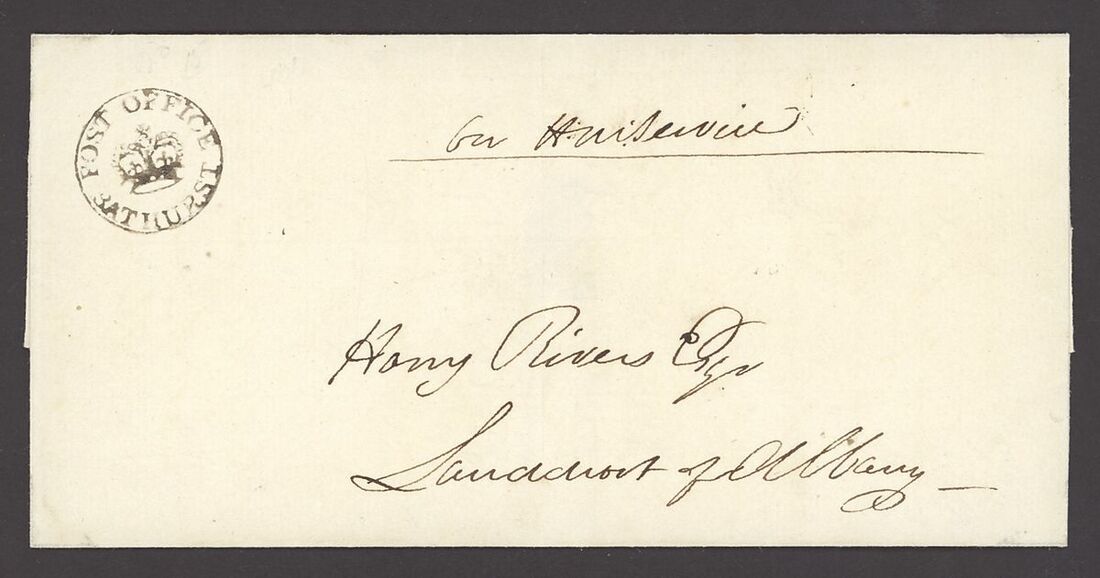 POST OFFICE
BATHURST
on H M Service
Harry Rivers Esqr
Landdrost of Albany